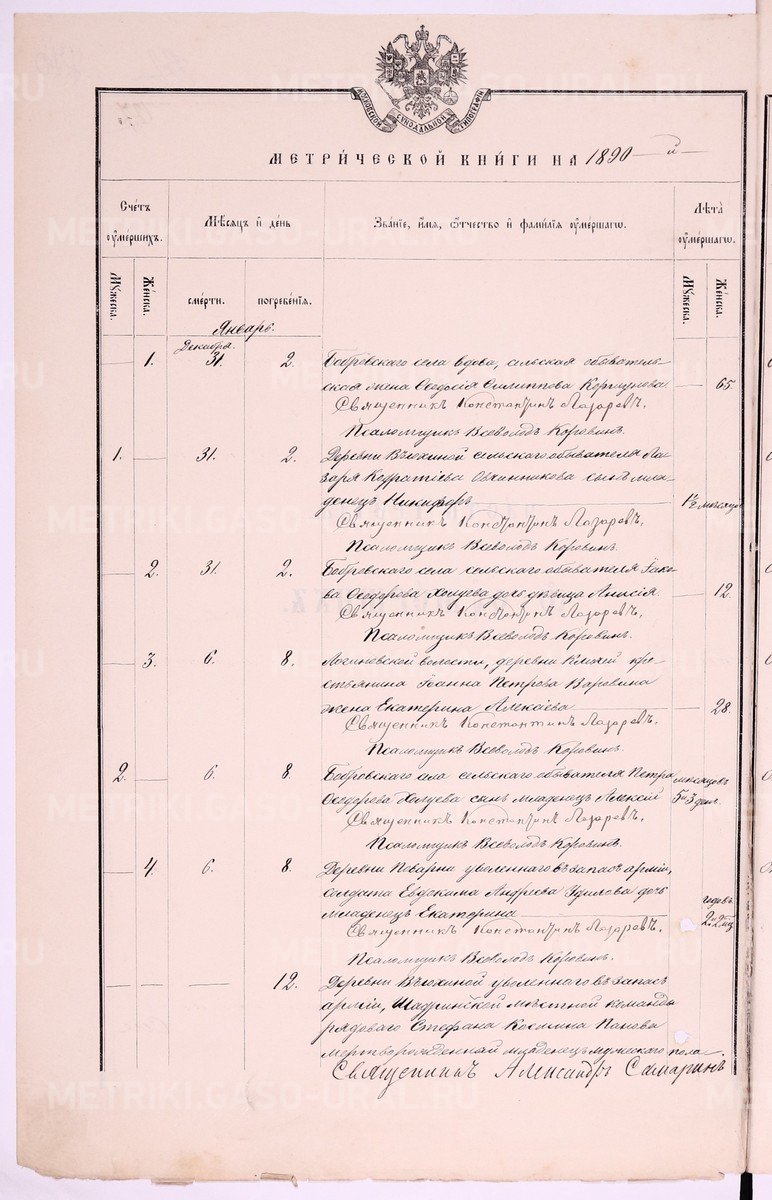 МОСКОВСКОЙ СѴНОДАЛЬНОЙ ТИПОГРАФІИ
МЕТРИ́ЧЕСКОЙ КНИ́ГИ НА 1890 й
Счетъ ѹмершихъ.
Мѣсяцъ и день
Званіе, имя, ѻтчество и фамилія ѹмершагѡ.
Лѣта ѹмершагѡ.
Мужеска.
Женска.
смерти.
погребенія.
Мужеска.
Женска.
Январь.
Декабря.
1. 31. 2. Бобровскаго села вдова, сельская обыватель-
ская жена Ѳеодосія Филиппова Коршунова 65.
Священникъ Константинъ Лазаревъ.
Псаломщикъ Всеволодъ Коровинъ.
1. 31. 2. Деревни Вьюхиной сельскаго обывателя Ла-
заря Кодратіева Овчинникова сынъ мла-
денецъ Никифоръ 1½ мѣсяца
Священникъ Константинъ Лазаревъ.
Псаломщикъ Всеволодъ Коровинъ.
2. 31. 2. Бобровскаго села сельскаго обывателя Іако-
ва Ѳеодорова Холуева дочь дѣвица Анисія. 12.
Священникъ Константинъ Лазаревъ.
Псаломщикъ Всеволодъ Коровинъ.
3. 6. 8. Логиновской волости, деревни Ключей кре-
стьянина Іоанна Петрова Варовина
жена Екатерина Алексѣева 28.
Священникъ Константинъ Лазаревъ.
Псаломщикъ Всеволодъ Коровинъ.
2. 6. 8. Бобровскаго села сельскаго обывателя Петра мѣсяцовъ
Ѳеодорова Холуева сынъ младенецъ Алексій 5 и 3 дня.
Священникъ Константинъ Лазаревъ.
Псаломщикъ Всеволодъ Коровинъ.
4. 6. 8. Деревни Поварни уволеннаго въ запасъ арміи,
солдата Евдокима Андреева Удилова дочь годовъ
младенецъ Екатерина 2 и 2 мц
Священникъ Константинъ Лазаревъ.
Псаломщикъ Всеволодъ Коровинъ.
12. Деревни Вьюхиной уволеннаго въ запасъ
арміи, Шадринской мѣстной команды
рядоваго Стефана Косьмина Попова
мертворожденный младенецъ мужескаго пола.
Священникъ Александръ Самаринъ
METRIKI.GASO-URAL.RU